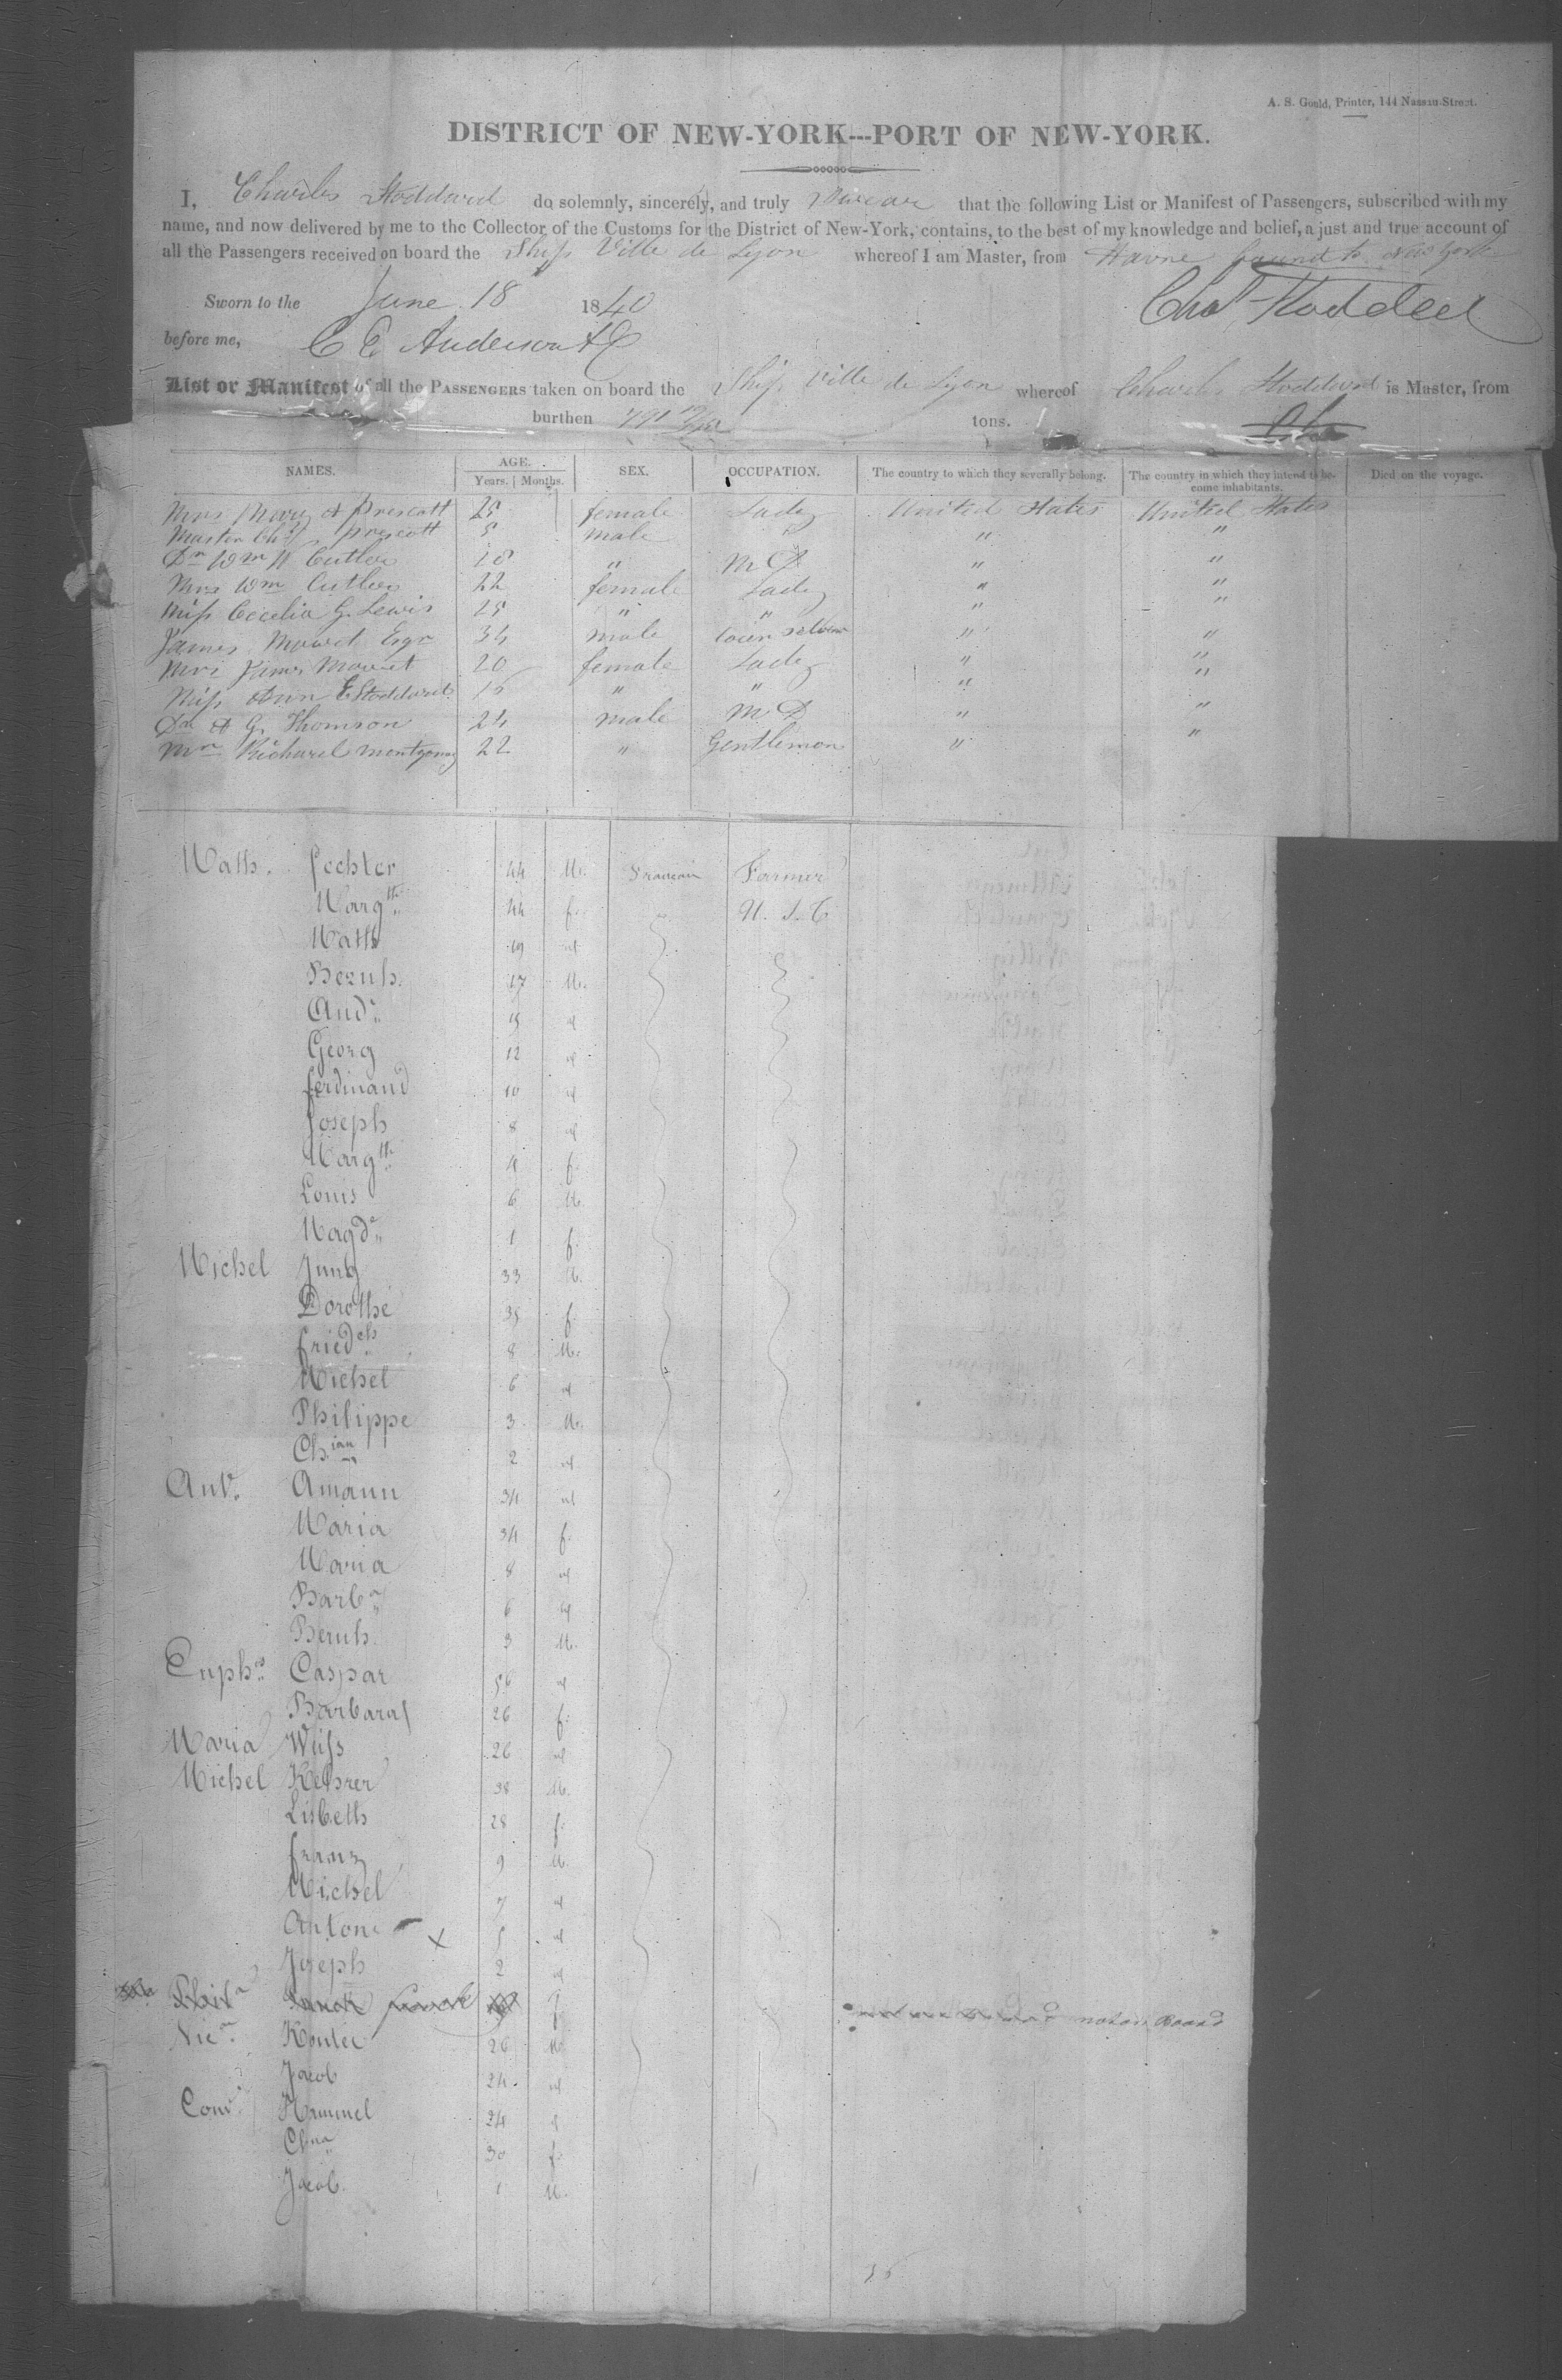 A. S. Gould, Printer, 144 Nassau-Street.
DISTRICT OF NEW-YORK---PORT OF NEW-YORK.
I, Charles Stoddard do solemnly, sincerely, and truly swear that the following List or Manifest of Passengers, subscribed with my
name, and now delivered by me to the Collector of the Customs for the District of New-York, contains, to the best of my knowledge and belief, a just and true account of
all the Passengers received on board the Ship Ville de Lyon whereof I am Master, from Havre bound to New York
Sworn to the June 18 1840 Chas Stoddard
before me, C E Anderson
List or Manifest of all the PASSENGERS taken on board the Ship Ville de Lyon whereof Charles Stoddard is Master, from
burthen 791 tons.
NAMES. AGE. Years. Months. SEX. OCCUPATION. The country to which they severally belong. The country in which they intend to become inhabitants. Died on the voyage.
Mrs Mary A Prescott 25 female Lady United States United States
Master Chs Prescott 5 male " "
Dr Wm W Cutler 28 " M D " "
Mrs Wm Cutler 22 female Lady " "
Miss Cecelia G. Lewis 25 " " " "
James Mowet Esqr 34 male " "
Mrs James Mowet 20 female Lady " "
Miss Ann E Stoddard 16 " " " "
Dr A G. Thomson 24 male M D " "
Mr Richard Montgomery 22 " Gentleman " "
Math. Fechter 44 M. Farmer
Margth 44 f. U. S.
Math 19 "
Bernh. 17 M.
Andr 15 "
Georg 12 "
Ferdinand 10 "
Joseph 8 "
Margth 4 f.
Louis 6 M.
Magde 1 f.
Michel Jung 33 M.
Dorothé 35 f.
Friedch 8 M.
Michel 6 "
Philippe 3 M.
Chian 2 "
Ant. Amann 34 "
Maria 34 f.
Maria 8 "
Barba 6 "
Bernh. 3 M.
Caspar 56 "
Barbara 26 f.
Maria Weiss 26 "
Michel Kehrer 38 M.
Lisbeth 28 f.
Franz 9 M.
Michel 7 "
Anton x 5 "
Joseph 2 "
not on Board
26 M.
Jacob 24 "
Hammel 24 "
30 f.
Jacob 1 M.